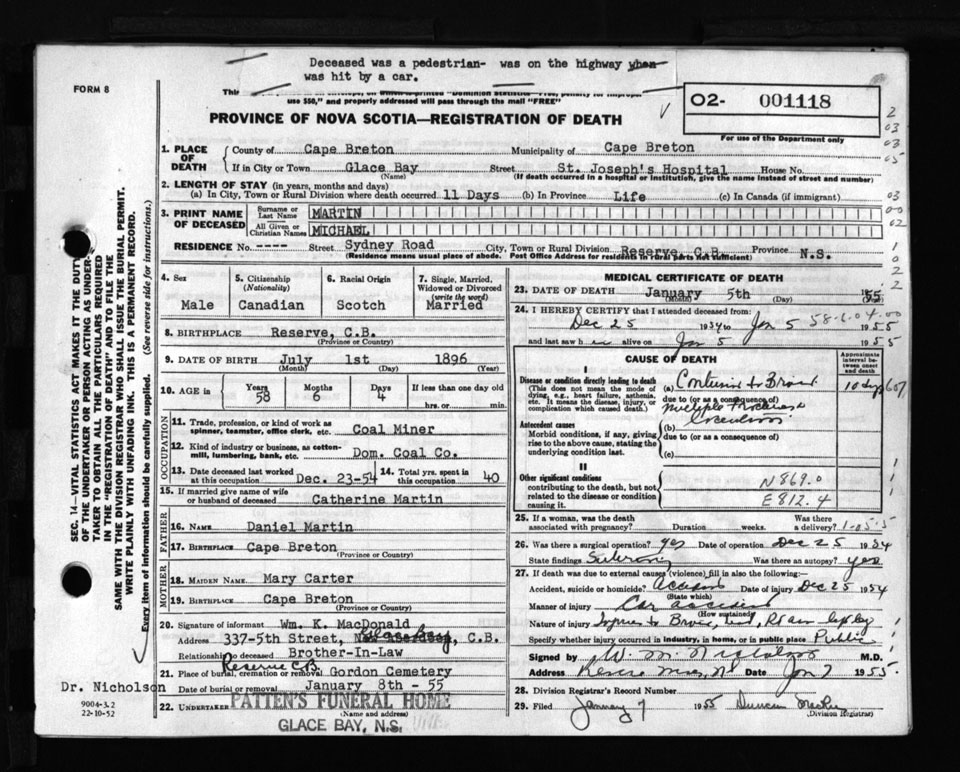 Deceased was a pedestrian- was on the highway when
was hit by a car.
FORM 8
use $50," and properly addressed will pass through the mail "FREE"
02- 001118
For use of the Department only
PROVINCE OF NOVA SCOTIA—REGISTRATION OF DEATH
1. PLACE OF DEATH
County of Cape Breton Municipality of Cape Breton
If in City or Town Glace Bay Street St. Joseph's Hospital House No.
(Name) (If death occurred in a hospital or institution, give the name instead of street and number)
2. LENGTH OF STAY (in years, months and days)
(a) In City, Town or Rural Division where death occurred 11 Days (b) In Province Life (c) In Canada (if immigrant)
3. PRINT NAME OF DECEASED
Surname or Last Name MARTIN
All Given or Christian Names MICHAEL
RESIDENCE No. ---- Street Sydney Road City, Town or Rural Division Reserve, C.B. Province N.S.
(Residence means usual place of abode. Post Office Address for residents in rural parts not sufficient)
4. Sex
Male
5. Citizenship
(Nationality)
Canadian
6. Racial Origin
Scotch
7. Single, Married, Widowed or Divorced
(write the word)
Married
8. BIRTHPLACE Reserve, C.B.
(Province or Country)
9. DATE OF BIRTH July 1st 1896
(Month) (Day) (Year)
10. AGE in Years 58 Months 6 Days 4 If less than one day old
hrs. or min.
OCCUPATION
11. Trade, profession, or kind of work as spinner, teamster, office clerk, etc. Coal Miner
12. Kind of industry or business, as cotton-mill, lumbering, bank, etc. Dom. Coal Co.
13. Date deceased last worked at this occupation Dec. 23-54 14. Total yrs. spent in this occupation 40
15. If married give name of wife or husband of deceased Catherine Martin
FATHER
16. NAME Daniel Martin
17. BIRTHPLACE Cape Breton
(Province or Country)
MOTHER
18. MAIDEN NAME Mary Carter
19. BIRTHPLACE Cape Breton
(Province or Country)
20. Signature of informant Wm. K. MacDonald
Address 337-5th Street, New Glace Bay, C.B.
Relationship to deceased Brother-In-Law
Reserve C.B.
21. Place of burial, cremation or removal Gordon Cemetery
Date of burial or removal January 8th - 55
22. UNDERTAKER PATTEN'S FUNERAL HOME
(Name and address)
GLACE BAY, N.S.
Dr. Nicholson
9004-3.2
22-10-52
SEC. 14—VITAL STATISTICS ACT MAKES IT THE DUTY
OF THE UNDERTAKER OR PERSON ACTING AS UNDER-
TAKER TO OBTAIN ALL THE PARTICULARS REQUIRED
IN THE "REGISTRATION OF DEATH" AND TO FILE THE
SAME WITH THE DIVISION REGISTRAR WHO SHALL ISSUE THE BURIAL PERMIT.
WRITE PLAINLY WITH UNFADING INK. THIS IS A PERMANENT RECORD.
Every item of information should be carefully supplied. (See reverse side for instructions.)
MEDICAL CERTIFICATE OF DEATH
23. DATE OF DEATH January 5th 1955
(Month) (Day)
24. I HEREBY CERTIFY that I attended deceased from:
Dec 25 1954 to Jan 5 1955
58-6-04-00
and last saw h alive on Jan 5 1955
CAUSE OF DEATH
Approximate interval between onset and death
I
Disease or condition directly leading to death
(This does not mean the mode of dying, e.g., heart failure, asthenia, etc. It means the disease, injury, or complication which caused death.)
(a) Contusion to Brain 10 days
due to (or as a consequence of)
Multiple
Antecedent causes
Morbid conditions, if any, giving rise to the above cause, stating the underlying condition last.
(b)
due to (or as a consequence of)
(c)
II
Other significant conditions
contributing to the death, but not related to the disease or condition causing it.
N869.0
E812.4
25. If a woman, was the death associated with pregnancy? Duration weeks. Was there a delivery?
1-05-5
26. Was there a surgical operation? yes Date of operation Dec 25 1954
State findings Was there an autopsy? yes
27. If death was due to external causes (violence) fill in also the following:—
Accident, suicide or homicide? Accident Date of injury Dec 25 1954
(State which)
Manner of injury Car accident
(How sustained)
Nature of injury
Specify whether injury occurred in industry, in home, or in public place Public
Signed by W. M. Nicholson M.D.
Address Reserve Mines, NS Date Jan 7 1955.
28. Division Registrar's Record Number
29. Filed January 7 1955 Duncan
(Division Registrar)
2
03
03
65
03
00
02
1
0
2
2